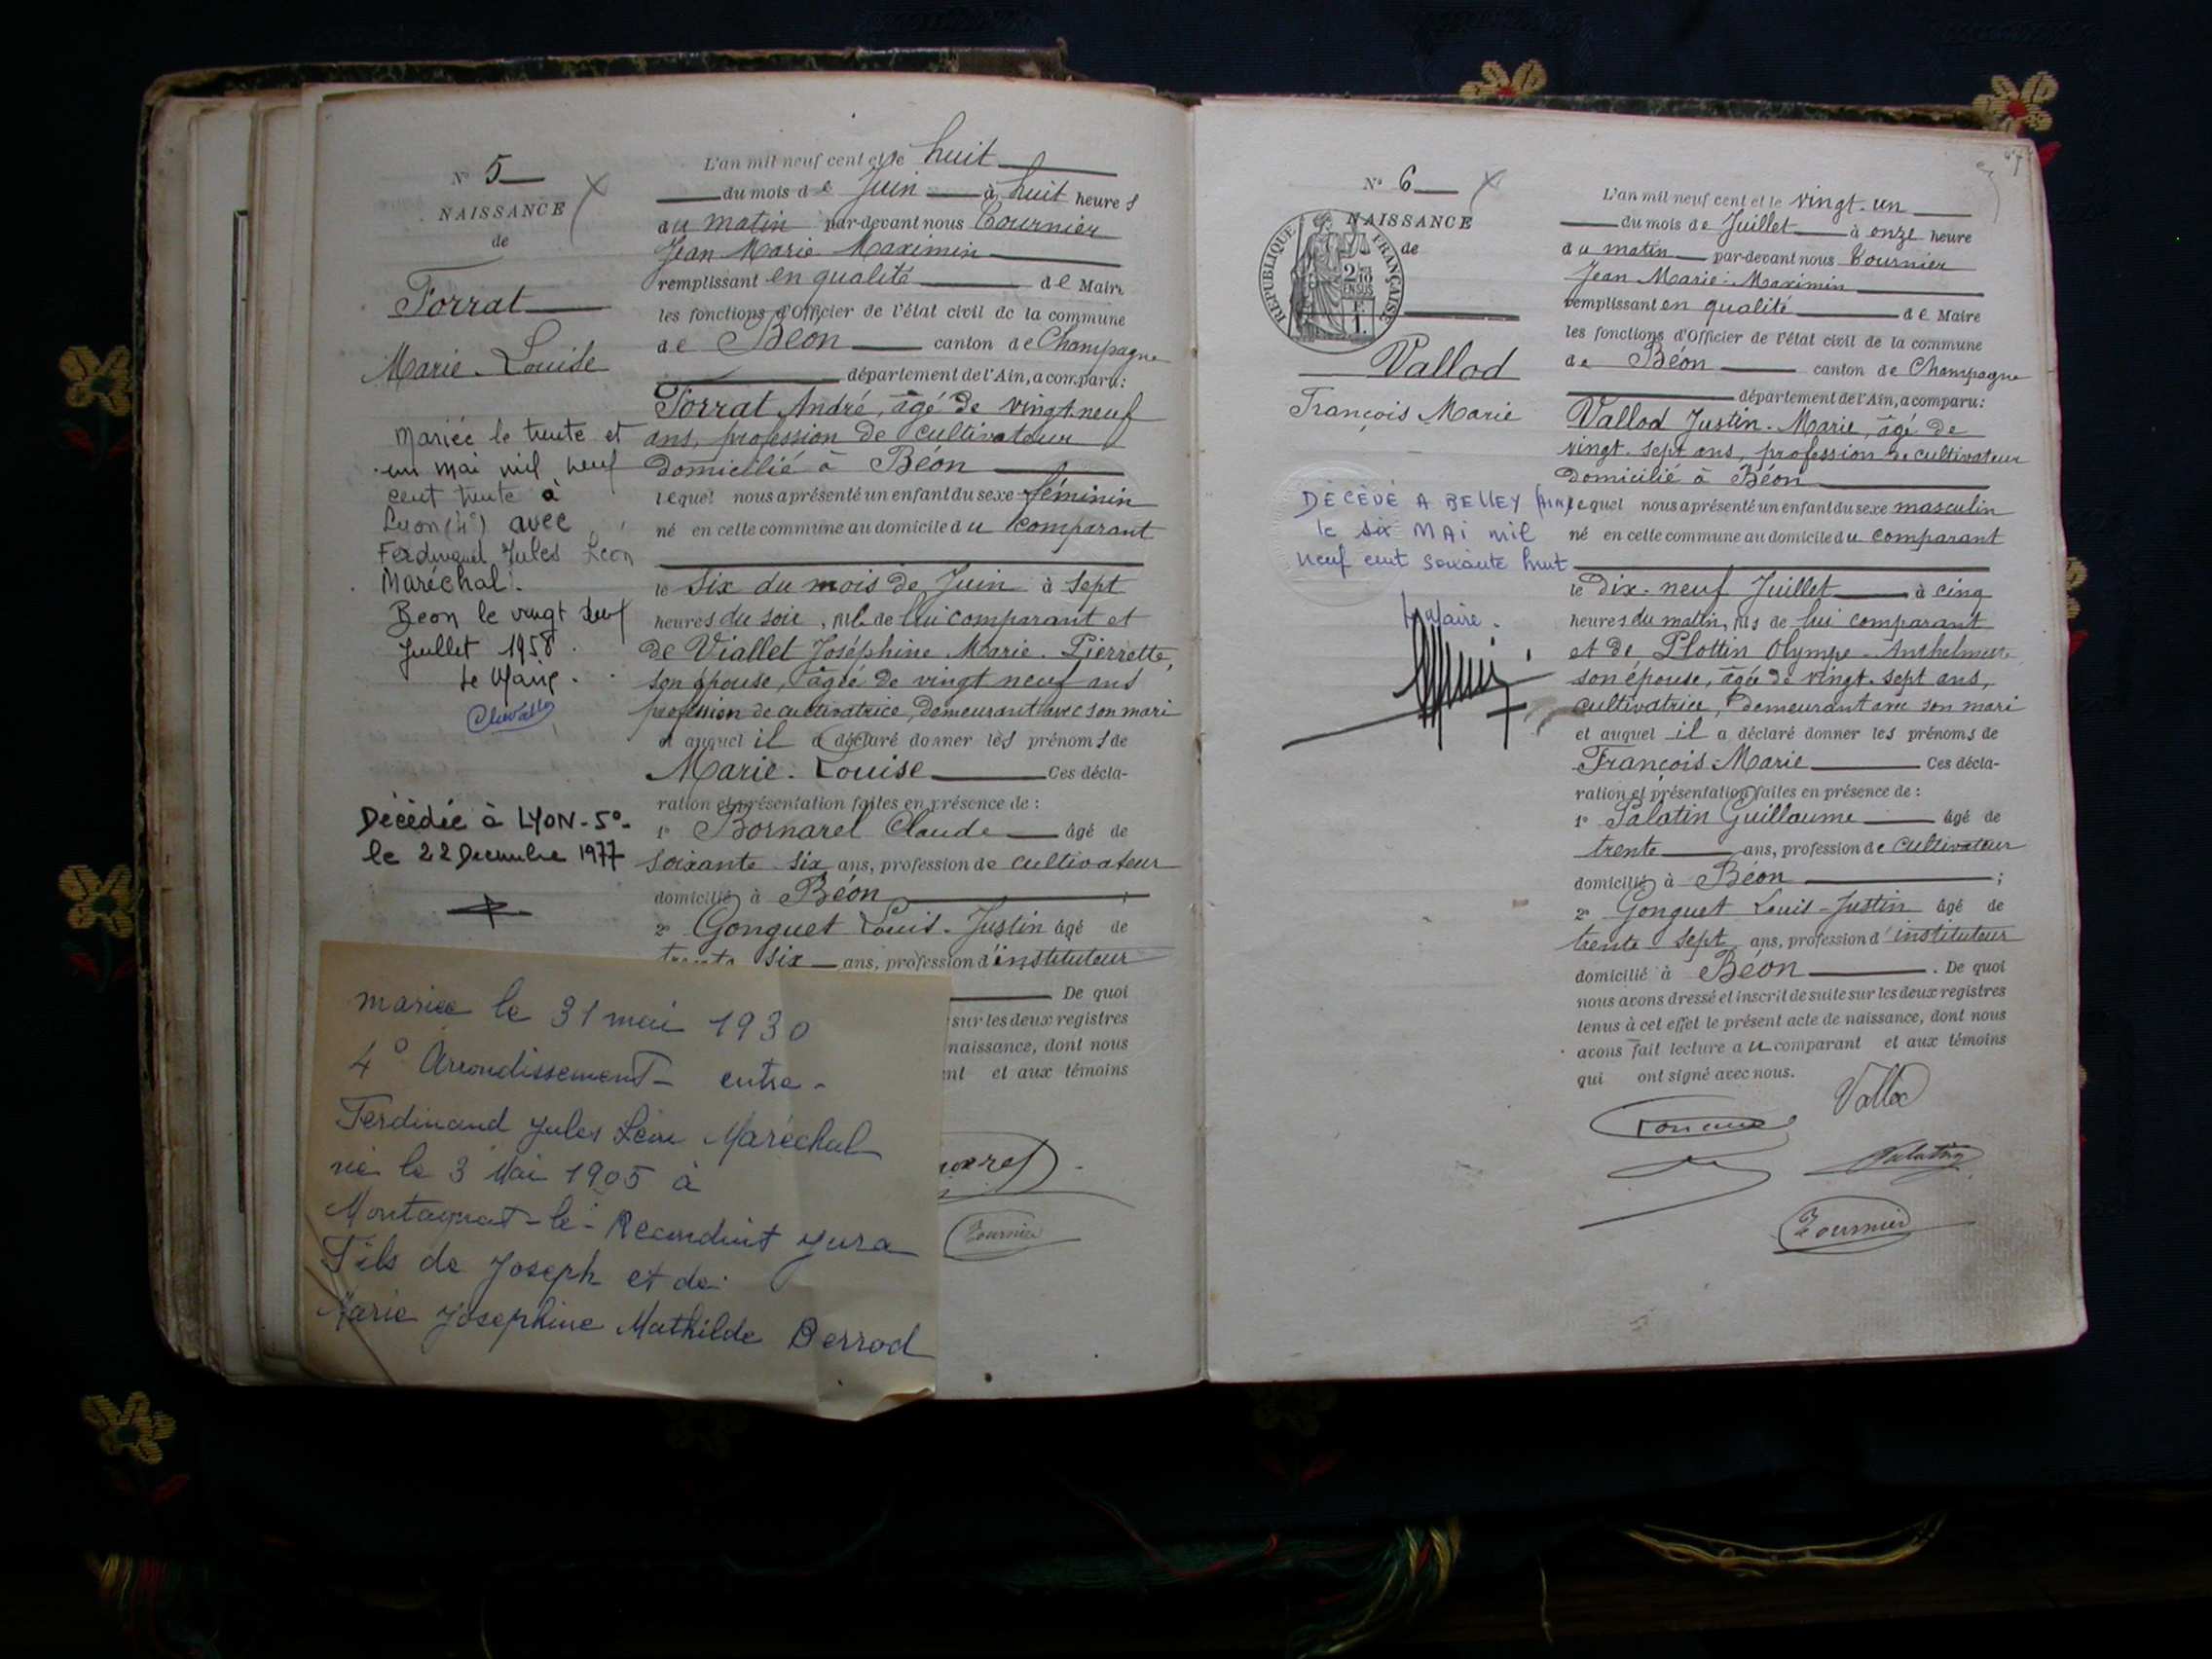 N° 5
NAISSANCE
de
Forrat
Marie-Louise
Mariée le trente et
un mai mil neuf
cent trente à
Lyon (4°) avec
Ferdinand Jules Léon
Maréchal.
Beon le vingt neuf
Juillet 1958.
Le Maire.
Décédée à LYON-5°-
le 22 Decembre 1977
L'an mil neuf cent et le huit
du mois de Juin à huit heures
du matin par-devant nous Tournier
Jean Marie Maximin
remplissant en qualité de Maire
les fonctions d'Officier de l'état civil de la commune
de Béon canton de Champagne
département de l'Ain, a comparu:
Forrat André, âgé de vingt neuf
ans, profession de cultivateur
domicilié à Béon
lequel nous a présenté un enfant du sexe féminin
né en cette commune au domicile du comparant
le six du mois de Juin à sept
heures du soir, de lui comparant et
de Viallet Joséphine Marie-Pierrette,
son épouse, âgée de vingt neuf ans
profession de cultivatrice, demeurant avec son mari
et auquel il a déclaré donner les prénoms de
Marie-Louise Ces décla-
ration et présentation faites en présence de :
1° Bornarel Claude âgé de
soixante six ans, profession de cultivateur
domicilié à Béon ;
2° Gonguet Louis-Justin âgé de
trente six ans, profession d'instituteur
De quoi
sur les deux registres
naissance, dont nous
et aux témoins
Tournier
mariee le 31 mai 1930
4° Arrondissement - entre -
Ferdinand Jules Léon Maréchal
né le 3 Mai 1905 à
Montagnat-le-Reconduit Jura
Fils de Joseph et de
Marie Josephine Mathilde Berrod
47
N° 6
NAISSANCE
de
REPUBLIQUE FRANÇAISE
2/10 EN SUS
1 F.
Vallod
François Marie
DÉCÉDÉ A BELLEY (Ain)
le six MAI mil
neuf cent soixante huit
Le Maire.
L'an mil neuf cent et le vingt-un
du mois de Juillet à onze heure
du matin par-devant nous Tournier
Jean Marie-Maximin
remplissant en qualité de Maire
les fonctions d'Officier de l'état civil de la commune
de Béon canton de Champagne
département de l'Ain, a comparu:
Vallod Justin-Marie, âgé de
vingt-sept ans, profession de cultivateur
domicilié à Béon
lequel nous a présenté un enfant du sexe masculin
né en cette commune au domicile du comparant
le dix-neuf Juillet à cinq
heures du matin, fils de lui comparant
et de Plottin Olympe-Anthelmette
son épouse, âgée de vingt-sept ans,
cultivatrice, demeurant avec son mari
et auquel il a déclaré donner les prénoms de
François-Marie Ces décla-
ration et présentation faites en présence de :
1° Palatin Guillaume âgé de
trente ans, profession de cultivateur
domicilié à Béon ;
2° Gonguet Louis-Justin âgé de
trente-sept ans, profession d'instituteur
domicilié à Béon. De quoi
nous avons dressé et inscrit de suite sur les deux registres
tenus à cet effet le présent acte de naissance, dont nous
avons fait lecture au comparant et aux témoins
qui ont signé avec nous.
Vallod
Palatin
Tournier